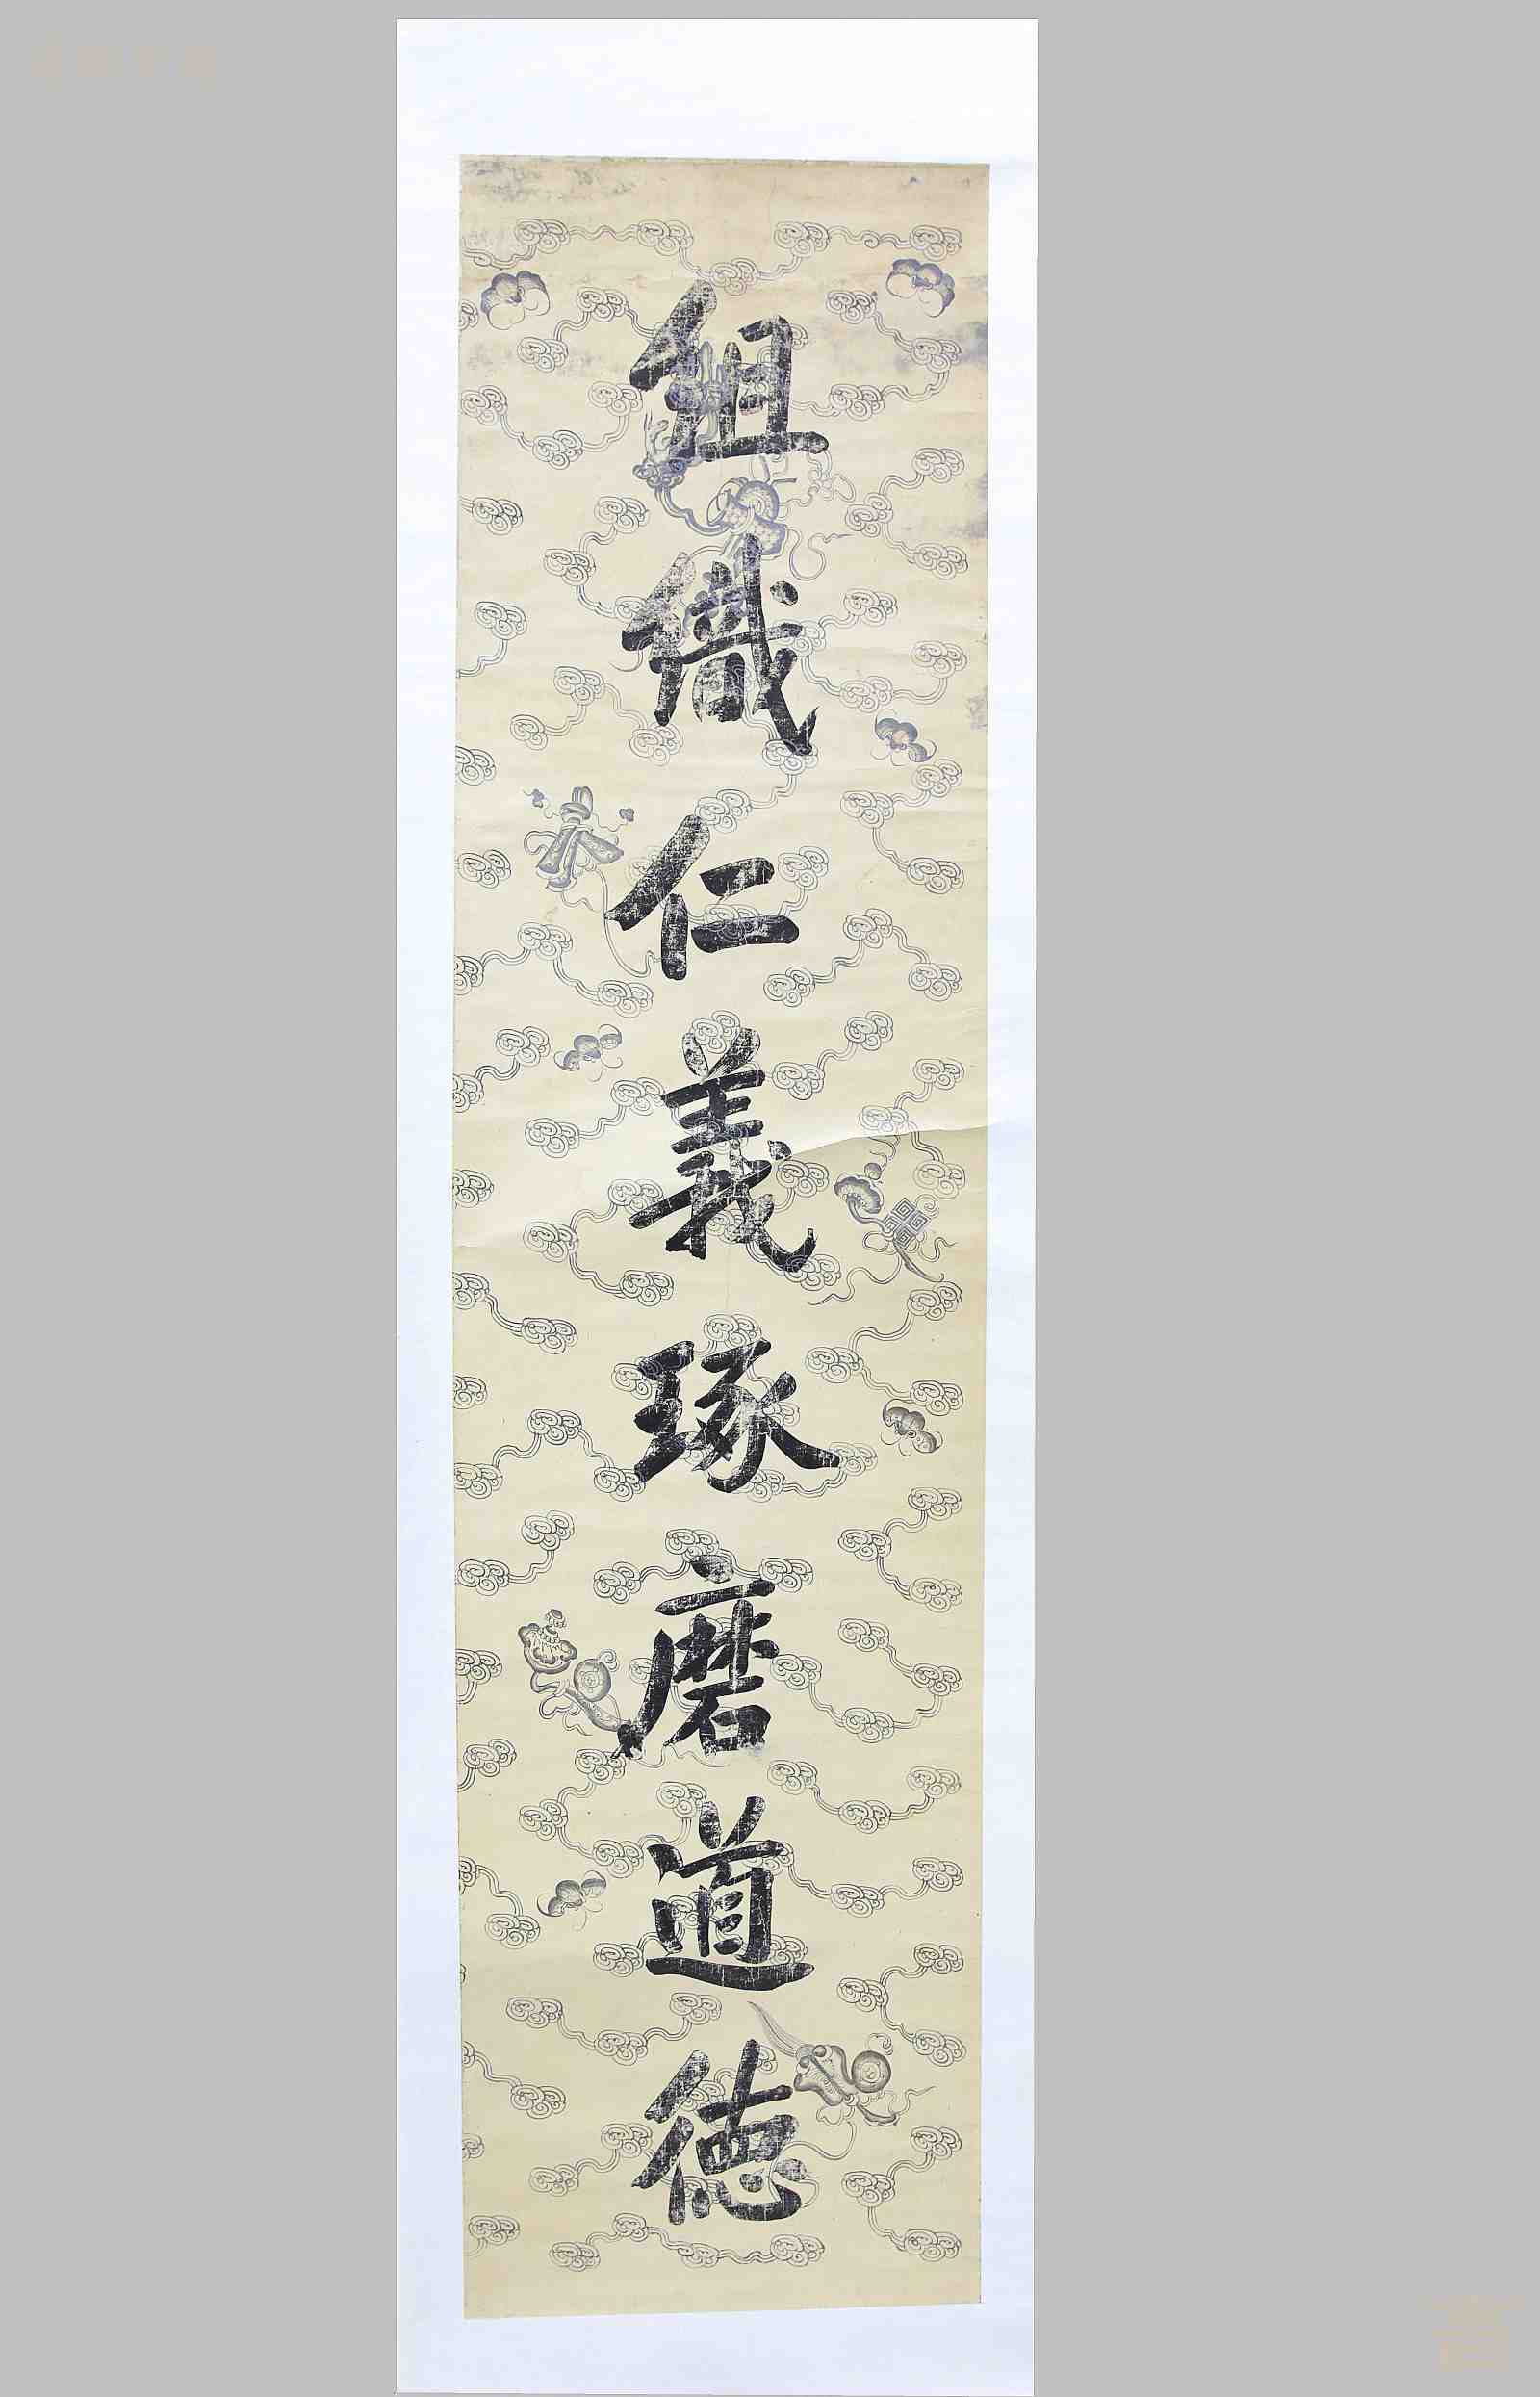 組織仁義琢磨道德